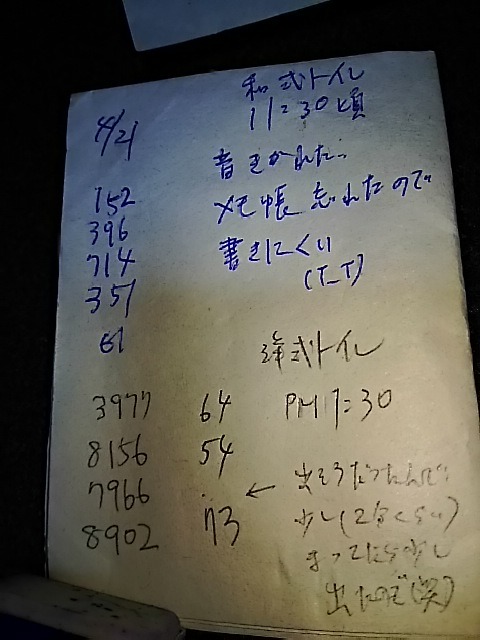 4/21
和式トイレ
11:30頃
音きかれた..
メモ帳忘れたので
書きにくい
(T_T)
152
396
714
351
61
洋式トイレ
PM 17:30
3977
8156
7966
8902
64
54
73
← 出そうだったんで
少し(2分くらい)
まってたら少し
出たのだ(笑)